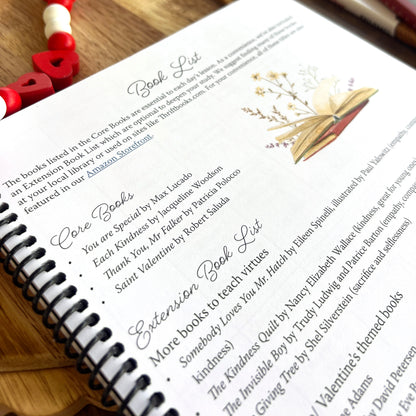 Book List
The books listed in the Core Books are essential to each day's lesson. As a convenience, we've also included
an Extension Book List which are optional to deepen your study. We suggest finding many of these books
at your local library or used on sites like Thriftbooks.com. For your convenience, all of these titles are also
featured in our Amazon Storefront.
Core Books
You are Special by Max Lucado
Each Kindness by Jacqueline Woodson
Thank You, Mr Falker by Patricia Polocco
Saint Valentine by Robert Sabuda
Extension Book List
More books to teach virtues
Somebody Loves You Mr. Hatch by Eileen Spinelli, illustrated by Paul Yalowitz (empathy,
kindness)
The Kindness Quilt by Nancy Elizabeth Wallace (kindness, great for young
The Invisible Boy by Trudy Ludwig and Patrice Barton (empathy,
Giving Tree by Shel Silverstein (sacrifice and selflessness)
Valentine's themed books
Adams
David Petersen